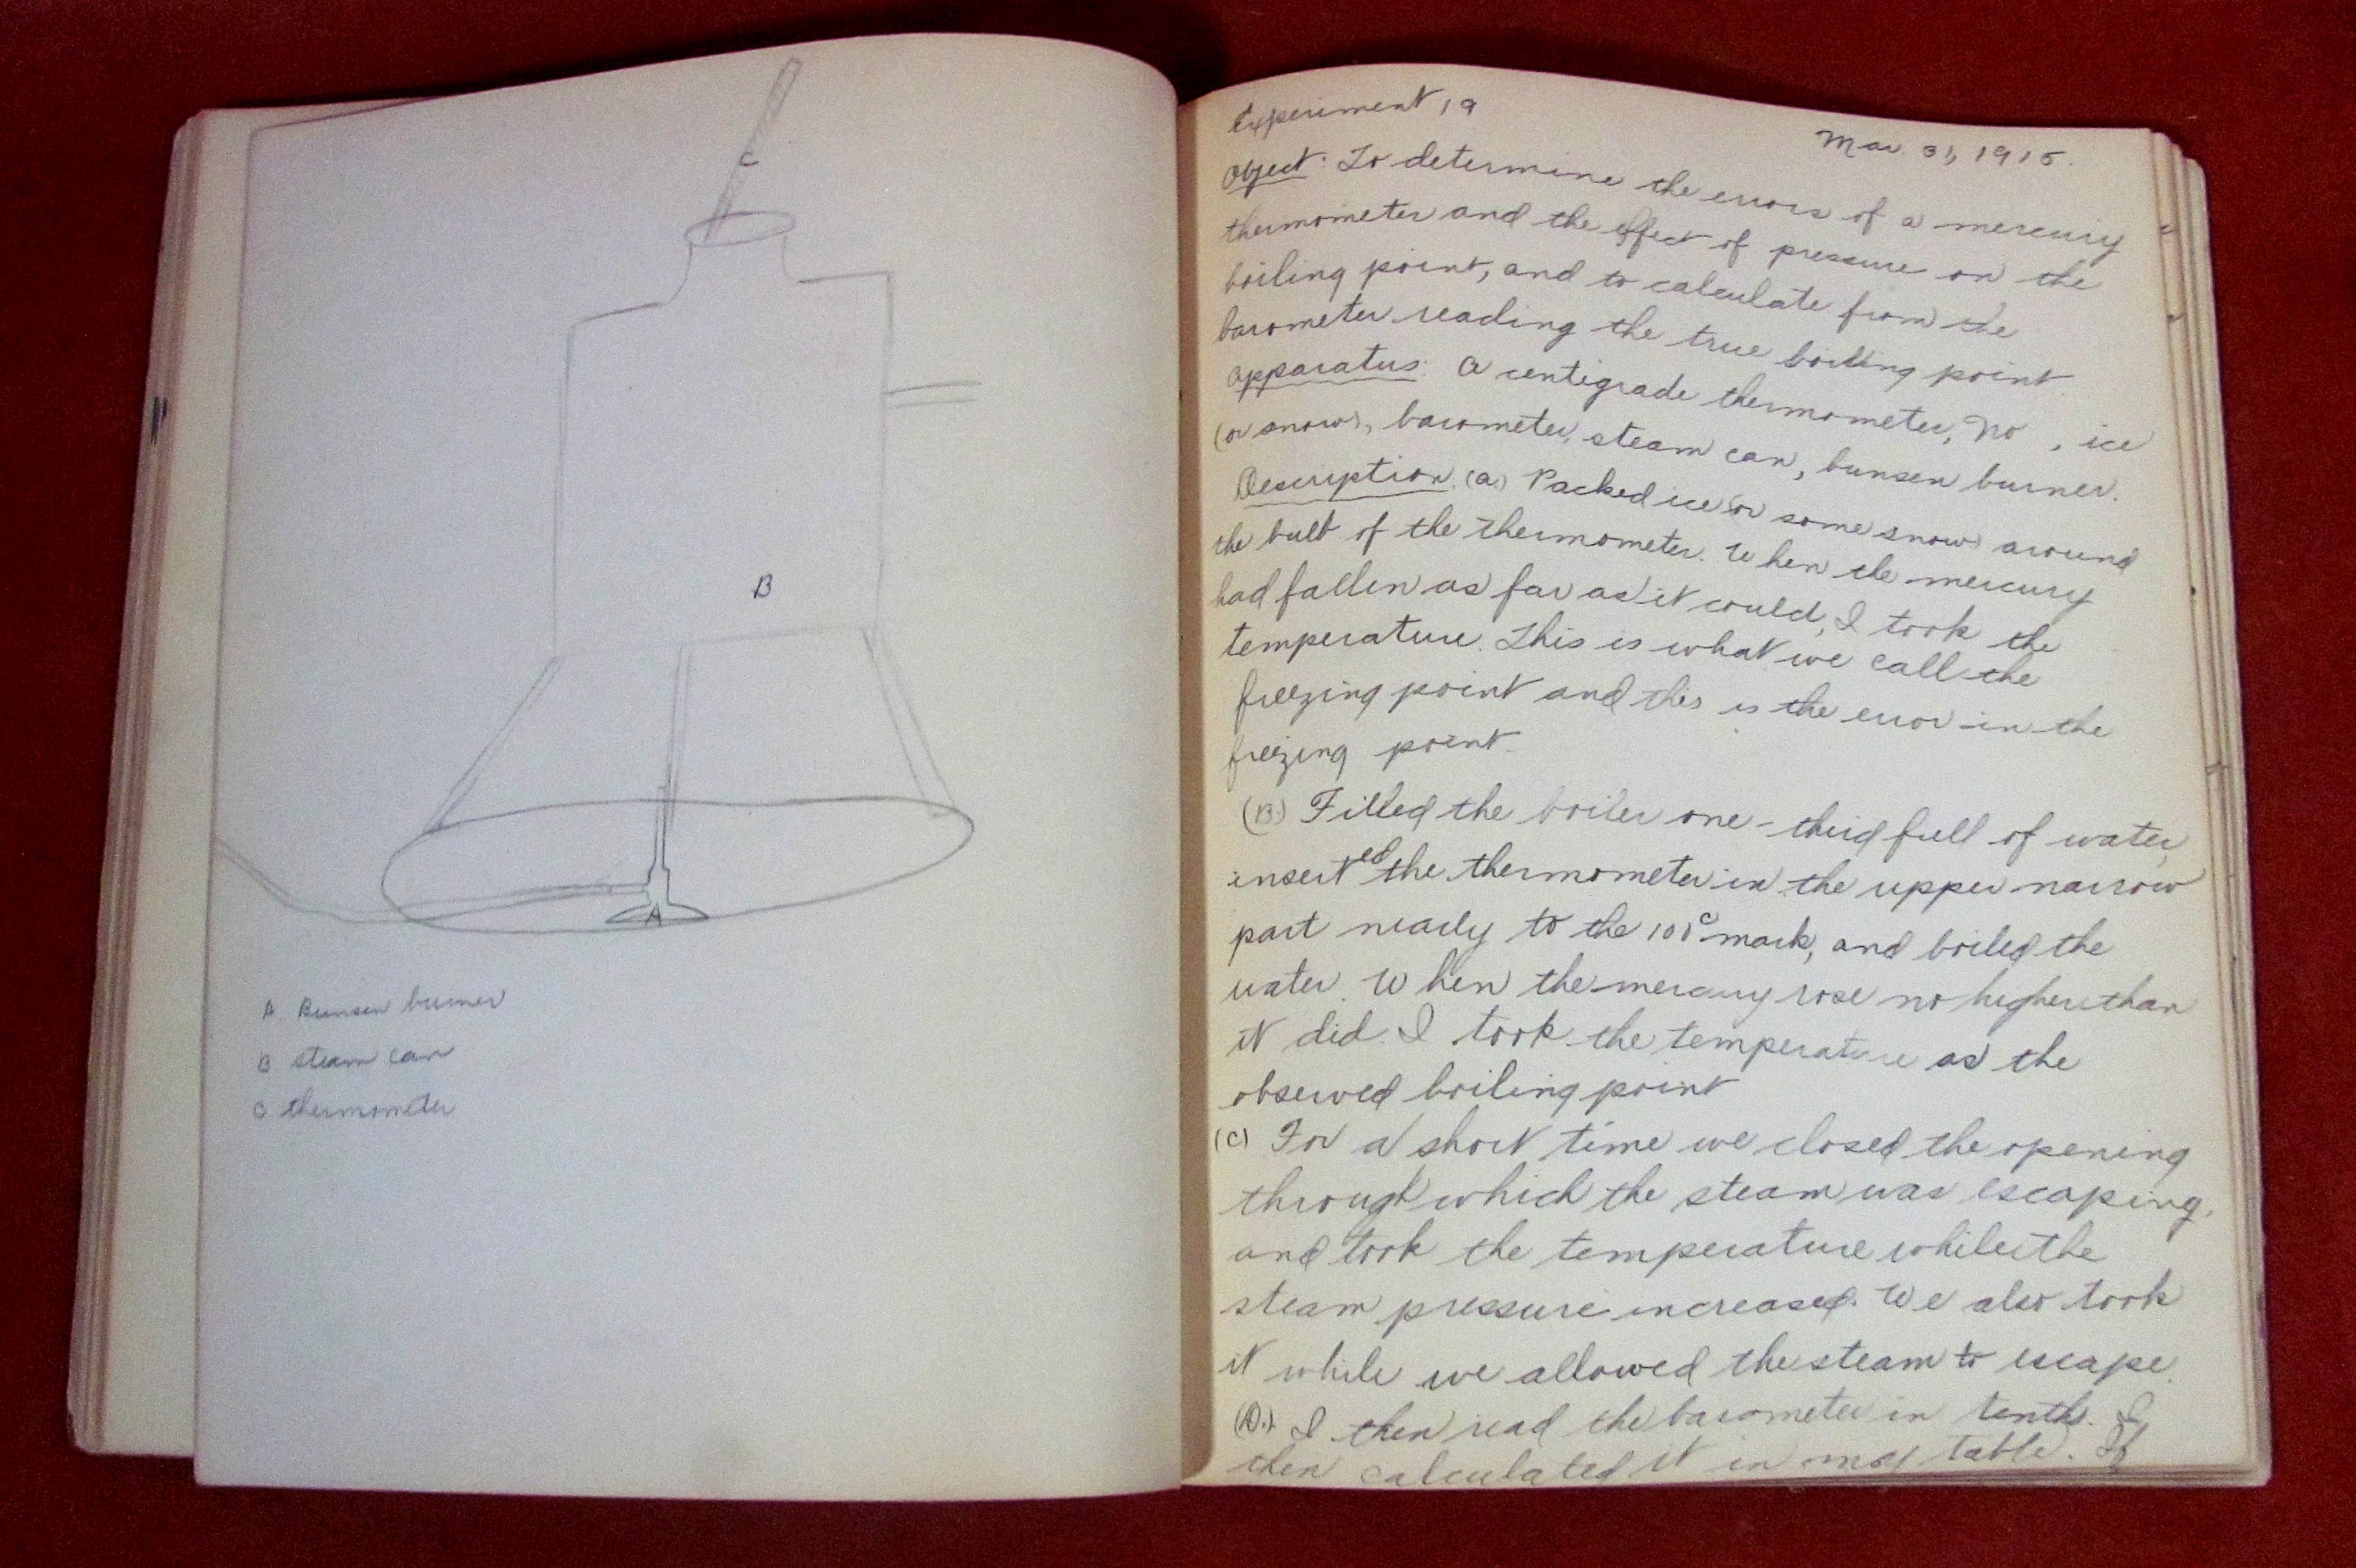 C
B
A
A Bunsen burner
B steam can
C thermometer
Experiment 19
Mar. 31, 1915.
Object: To determine the errors of a mercury
thermometer and the effect of pressure on the
boiling point, and to calculate from the
barometer reading the true boiling point
Apparatus: A centigrade thermometer, No , ice
(or snow), barometer, steam can, bunsen burner.
Description. (a.) Packed ice (or some snow) around
the bulb of the thermometer. When the mercury
had fallen as far as it could, I took the
temperature. This is what we call the
freezing point and this is the error in the
freezing point.
(B.) Filled the boiler one-third full of water,
inserted the thermometer in the upper narrow
part nearly to the 100° mark, and boiled the
water. When the mercury rose no higher than
it did. I took the temperature as the
observed boiling point
(C) For a short time we closed the opening
through which the steam was escaping.
and took the temperature while the
steam pressure increased. We also took
it while we allowed the steam to escape.
(D.) I then read the barometer in tenths. I
then calculated it in my table. If